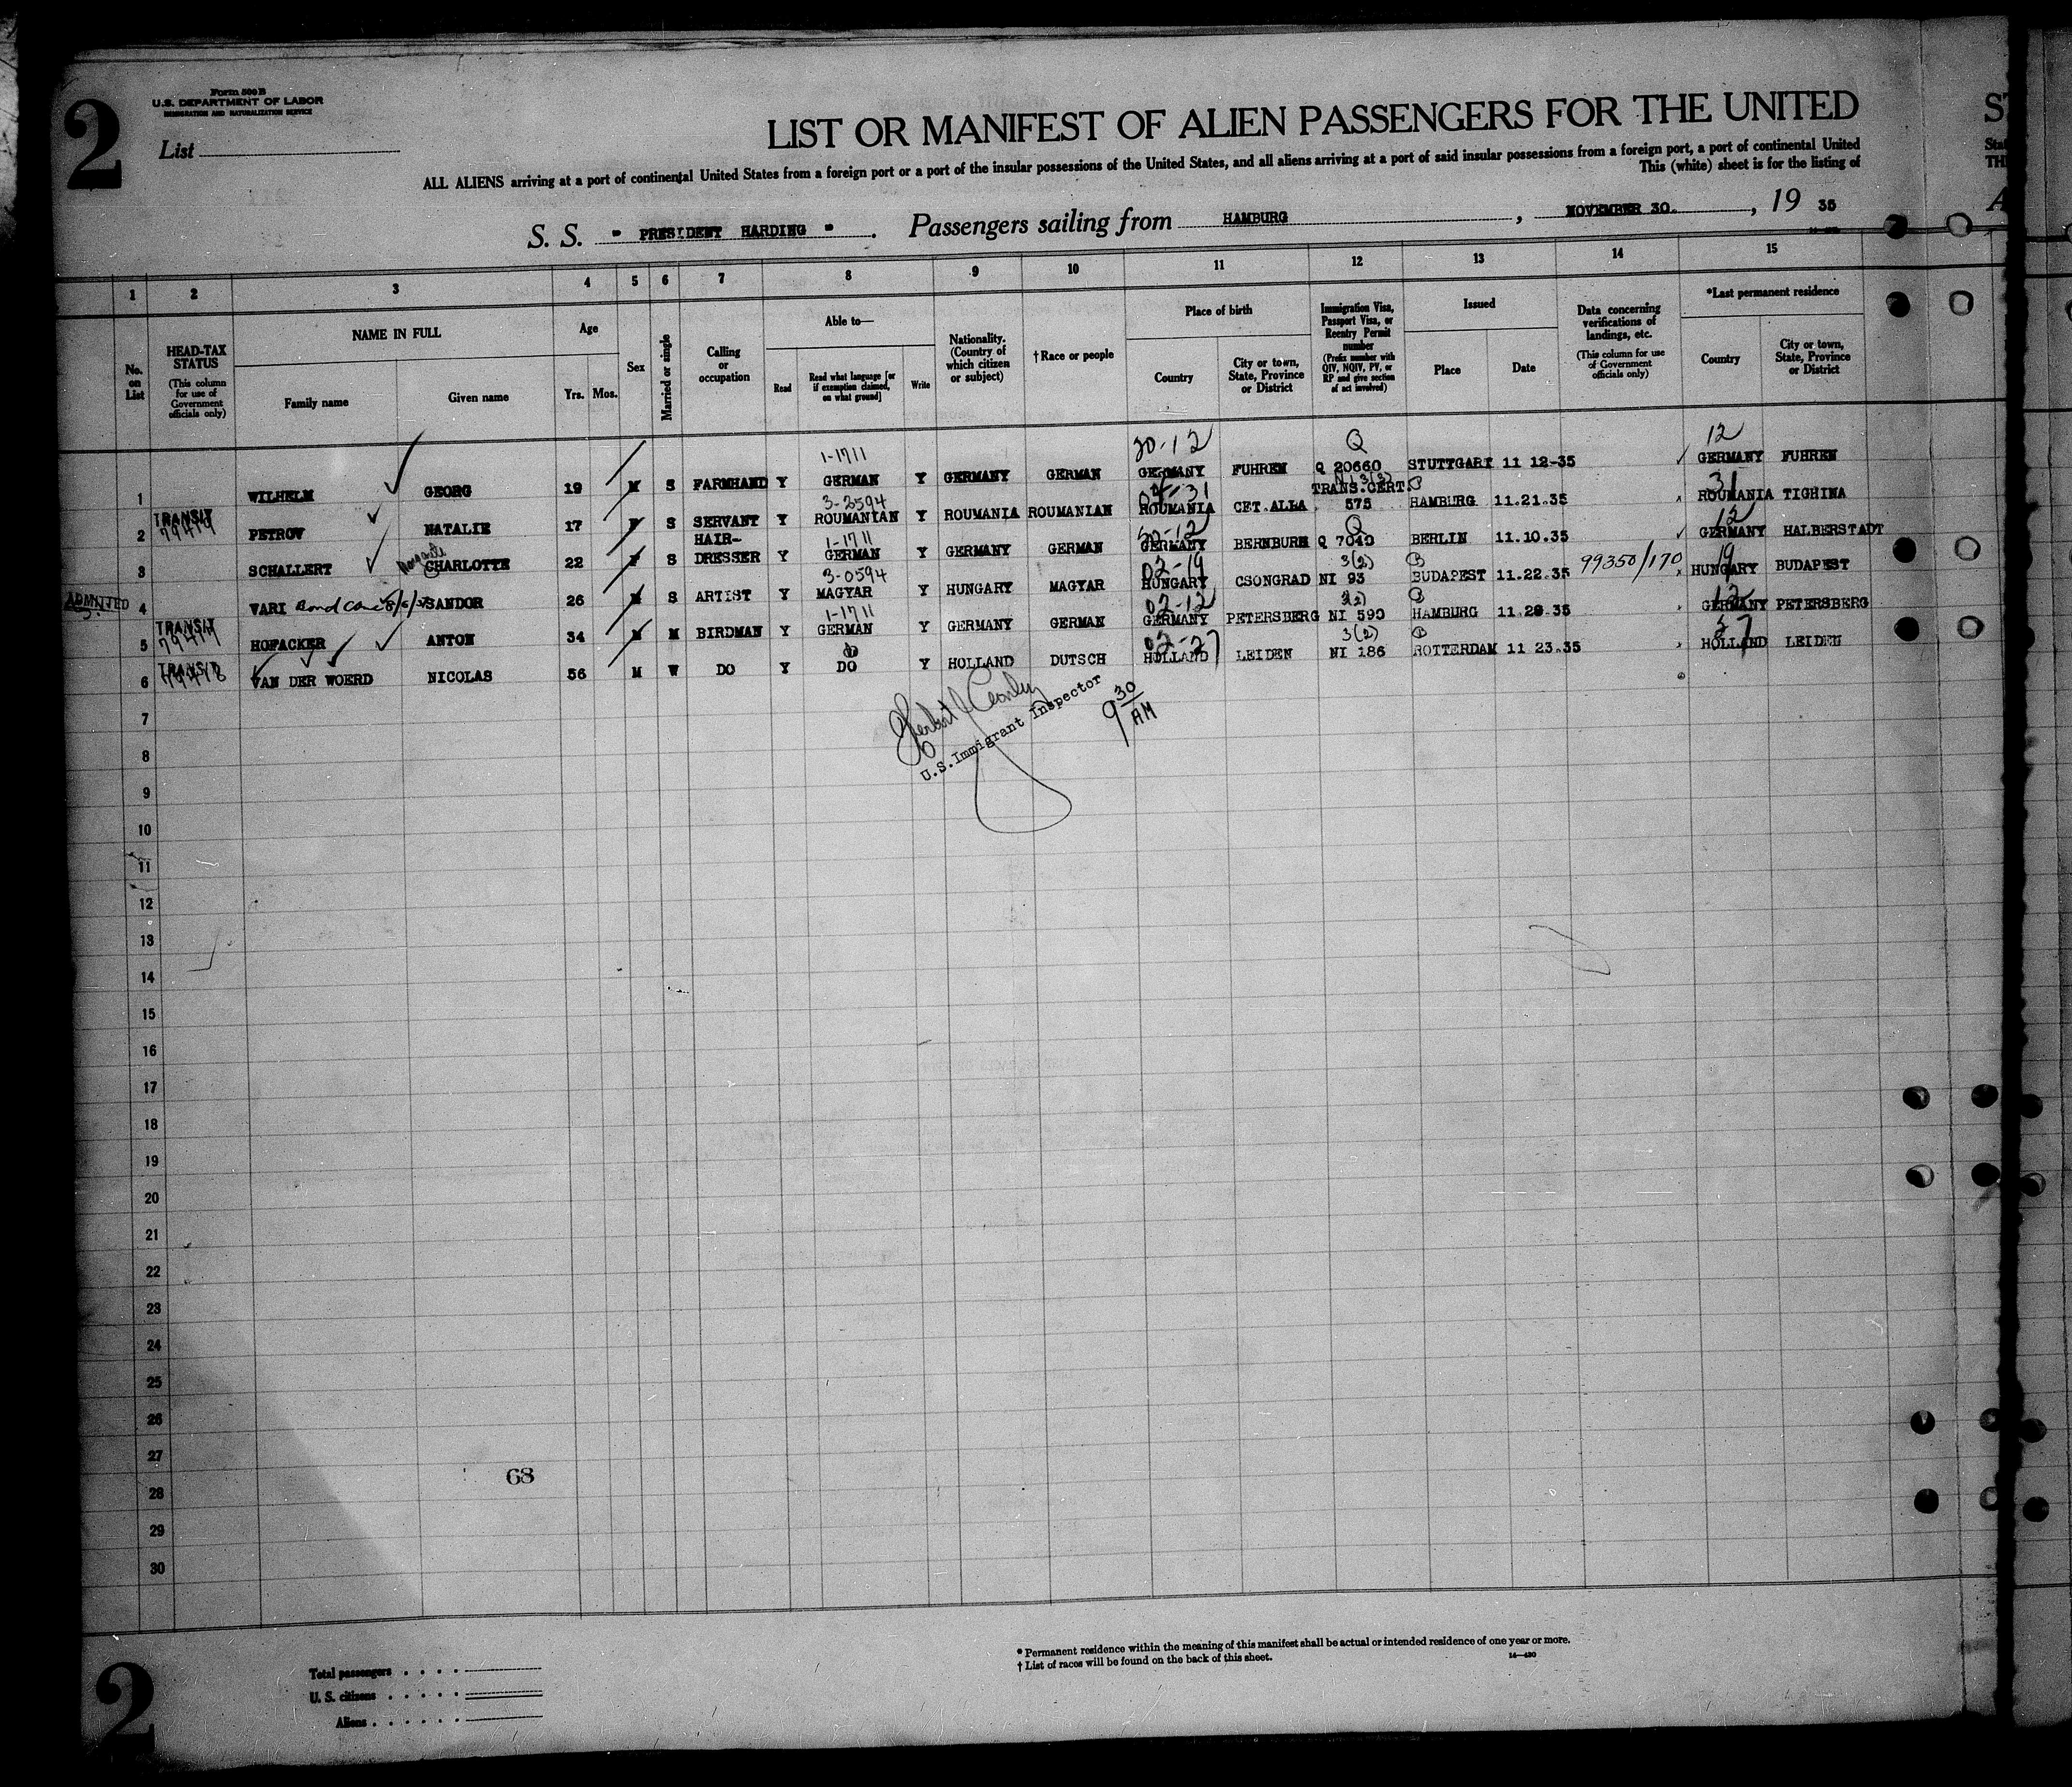 2
Form 500 B
U.S. DEPARTMENT OF LABOR
IMMIGRATION AND NATURALIZATION SERVICE
List
LIST OR MANIFEST OF ALIEN PASSENGERS FOR THE UNITED
ALL ALIENS arriving at a port of continental United States from a foreign port or a port of the insular possessions of the United States, and all aliens arriving at a port of said insular possessions from a foreign port, a port of continental United
This (white) sheet is for the listing of
S. S. " PRESIDENT HARDING ". Passengers sailing from HAMBURG , NOVEMBER 30. , 19 35
1 2 3 4 5 6 7 8 9 10 11 12 13 14 15
No. on List
HEAD-TAX STATUS (This column for use of Government officials only)
NAME IN FULL
Family name Given name
Age
Yrs. Mos.
Sex
Married or single
Calling or occupation
Able to—
Read
Read what language [or if exemption claimed, on what ground]
Write
Nationality. (Country of which citizen or subject)
† Race or people
Place of birth
Country
City or town, State, Province or District
Immigration Visa, Passport Visa, or Reentry Permit number
(Prefix number with QIV, NQIV, PV, or RP and give section of act involved)
Issued
Place Date
Data concerning verifications of landings, etc.
(This column for use of Government officials only)
*Last permanent residence
Country
City or town, State, Province or District
1-1711 30-12 Q 12
1 WILHELM GEORG 19 M S FARMHAND Y GERMAN Y GERMANY GERMAN GERMANY FUHREN Q 20660 STUTTGART 11 12-35 GERMANY FUHREN
TRANSIT 3-2594 31 TRANS.CERT. 31
2 79419 PETROV NATALIE 17 F S SERVANT Y ROUMANIAN Y ROUMANIA ROUMANIAN ROUMANIA CET.ALBA 575 HAMBURG 11.21.35 ROUMANIA TIGHINA
HAIR- 1-1711 30-12 Q 12
3 SCHALLERT CHARLOTTE 22 F S DRESSER Y GERMAN Y GERMANY GERMAN GERMANY BERNBURG Q 7040 BERLIN 11.10.35 GERMANY HALBERSTADT
ADMITTED 3-0594 02-19 3(2) 99350/170 19
4 VARI SANDOR 26 M S ARTIST Y MAGYAR Y HUNGARY MAGYAR HUNGARY CSONGRAD NI 93 BUDAPEST 11.22.35 HUNGARY BUDAPEST
TRANSIT 1-1711 02-12 12
5 79417 HOFACKER ANTON 34 M M BIRDMAN Y GERMAN Y GERMANY GERMAN GERMANY PETERSBERG NI 590 HAMBURG 11.29.35 GERMANY PETERSBERG
TRANSIT 02-27 3(2) 27
6 79418 VAN DER WOERD NICOLAS 56 M W DO Y DO Y HOLLAND DUTSCH HOLLAND LEIDEN NI 186 ROTTERDAM 11 23.35 HOLLAND LEIDEN
U.S.Immigrant Inspector
9 30 AM
7
8
9
10
11
12
13
14
15
16
17
18
19
20
21
22
23
24
25
26
27
68
28
29
30
* Permanent residence within the meaning of this manifest shall be actual or intended residence of one year or more.
† List of races will be found on the back of this sheet.
14—430
Total passengers
U. S. citizens
Aliens
2